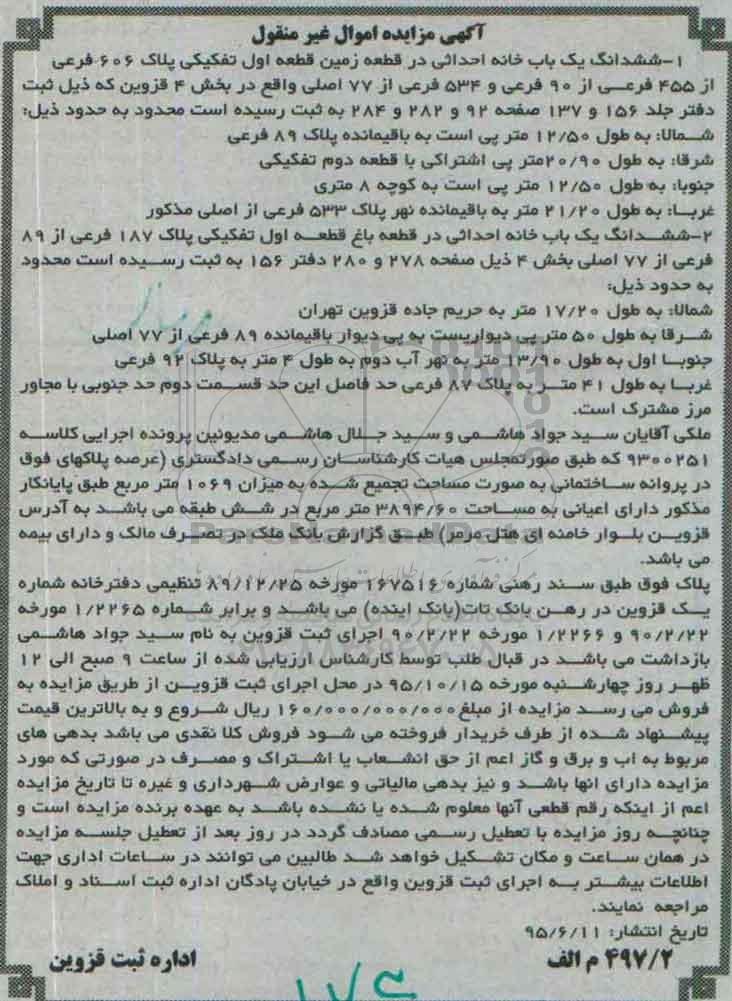 آگهی مزایده اموال غیر منقول
۱-ششدانگ یک باب خانه احداثی در قطعه زمین قطعه اول تفکیکی پلاک ۶۰۶ فرعی
از ۴۵۵ فرعی از ۹۰ فرعی و ۵۳۴ فرعی از ۷۷ اصلی واقع در بخش ۴ قزوین که ذیل ثبت
دفتر جلد ۱۵۶ و ۱۳۷ صفحه ۹۲ و ۲۸۲ و ۲۸۴ به ثبت رسیده است محدود به حدود ذیل:
شمالا: به طول ۱۲/۵۰ متر پی است به باقیمانده پلاک ۸۹ فرعی
شرقا: به طول ۲۰/۹۰متر پی اشتراکی با قطعه دوم تفکیکی
جنوبا: به طول ۱۲/۵۰ متر پی است به کوچه ۸ متری
غربا: به طول ۲۱/۲۰ متر به باقیمانده نهر پلاک ۵۳۳ فرعی از اصلی مذکور
۲-ششدانگ یک باب خانه احداثی در قطعه باغ قطعه اول تفکیکی پلاک ۱۸۷ فرعی از ۸۹
فرعی از ۷۷ اصلی بخش ۴ ذیل صفحه ۲۷۸ و ۲۸۰ دفتر ۱۵۶ به ثبت رسیده است محدود
به حدود ذیل:
شمالا: به طول ۱۷/۲۰ متر به حریم جاده قزوین تهران
شرقا به طول ۵۰ متر پی دیواریست به پی دیوار باقیمانده ۸۹ فرعی از ۷۷ اصلی
جنوبا اول به طول ۱۳/۹۰ متر به نهر آب دوم به طول ۴ متر به پلاک ۹۲ فرعی
غربا به طول ۴۱ متر به پلاک ۸۷ فرعی حد فاصل این حد قسمت دوم حد جنوبی با مجاور
مرز مشترک است.
ملکی آقایان سید جواد هاشمی و سید جلال هاشمی مدیونین پرونده اجرایی کلاسه
۹۳۰۰۲۵۱ که طبق صورتمجلس هیات کارشناسان رسمی دادگستری (عرصه پلاکهای فوق
در پروانه ساختمانی به صورت مساحت تجمیع شده به میزان ۱۰۶۹ متر مربع طبق پایانکار
مذکور دارای اعیانی به مساحت ۳۸۹۴/۶۰ متر مربع در شش طبقه می باشد به آدرس
قزوین بلوار خامنه ای هتل مرمر) طبق گزارش بانک ملک در تصرف مالک و دارای بیمه
می باشد.
پلاک فوق طبق سند رهنی شماره ۱۶۷۵۱۶ مورخه ۸۹/۱۲/۲۵ تنظیمی دفترخانه شماره
یک قزوین در رهن بانک تات(بانک اینده) می باشد و برابر شماره ۱/۲۲۶۵ مورخه
۹۰/۲/۲۲ و ۱/۲۲۶۶ مورخه ۹۰/۲/۲۲ اجرای ثبت قزوین به نام سید جواد هاشمی
بازداشت می باشد در قبال طلب توسط کارشناس ارزیابی شده از ساعت ۹ صبح الی ۱۲
ظهر روز چهارشنبه مورخه ۹۵/۱۰/۱۵ در محل اجرای ثبت قزوین از طریق مزایده به
فروش می رسد مزایده از مبلغ ۱۶۰/۰۰۰/۰۰۰/۰۰۰ ریال شروع و به بالاترین قیمت
پیشنهاد شده از طرف خریدار فروخته می شود فروش کلا نقدی می باشد بدهی های
مربوط به اب و برق و گاز اعم از حق انشعاب یا اشتراک و مصرف در صورتی که مورد
مزایده دارای انها باشد و نیز بدهی مالیاتی و عوارض شهرداری و غیره تا تاریخ مزایده
اعم از اینکه رقم قطعی آنها معلوم شده یا نشده باشد به عهده برنده مزایده است و
چنانچه روز مزایده با تعطیل رسمی مصادف گردد در روز بعد از تعطیل جلسه مزایده
در همان ساعت و مکان تشکیل خواهد شد طالبین می توانند در ساعات اداری جهت
اطلاعات بیشتر به اجرای ثبت قزوین واقع در خیابان پادگان اداره ثبت اسناد و املاک
مراجعه نمایند.
تاریخ انتشار: ۹۵/۶/۱۱
۴۹۷/۲ م الف
اداره ثبت قزوین
ParsNamadData